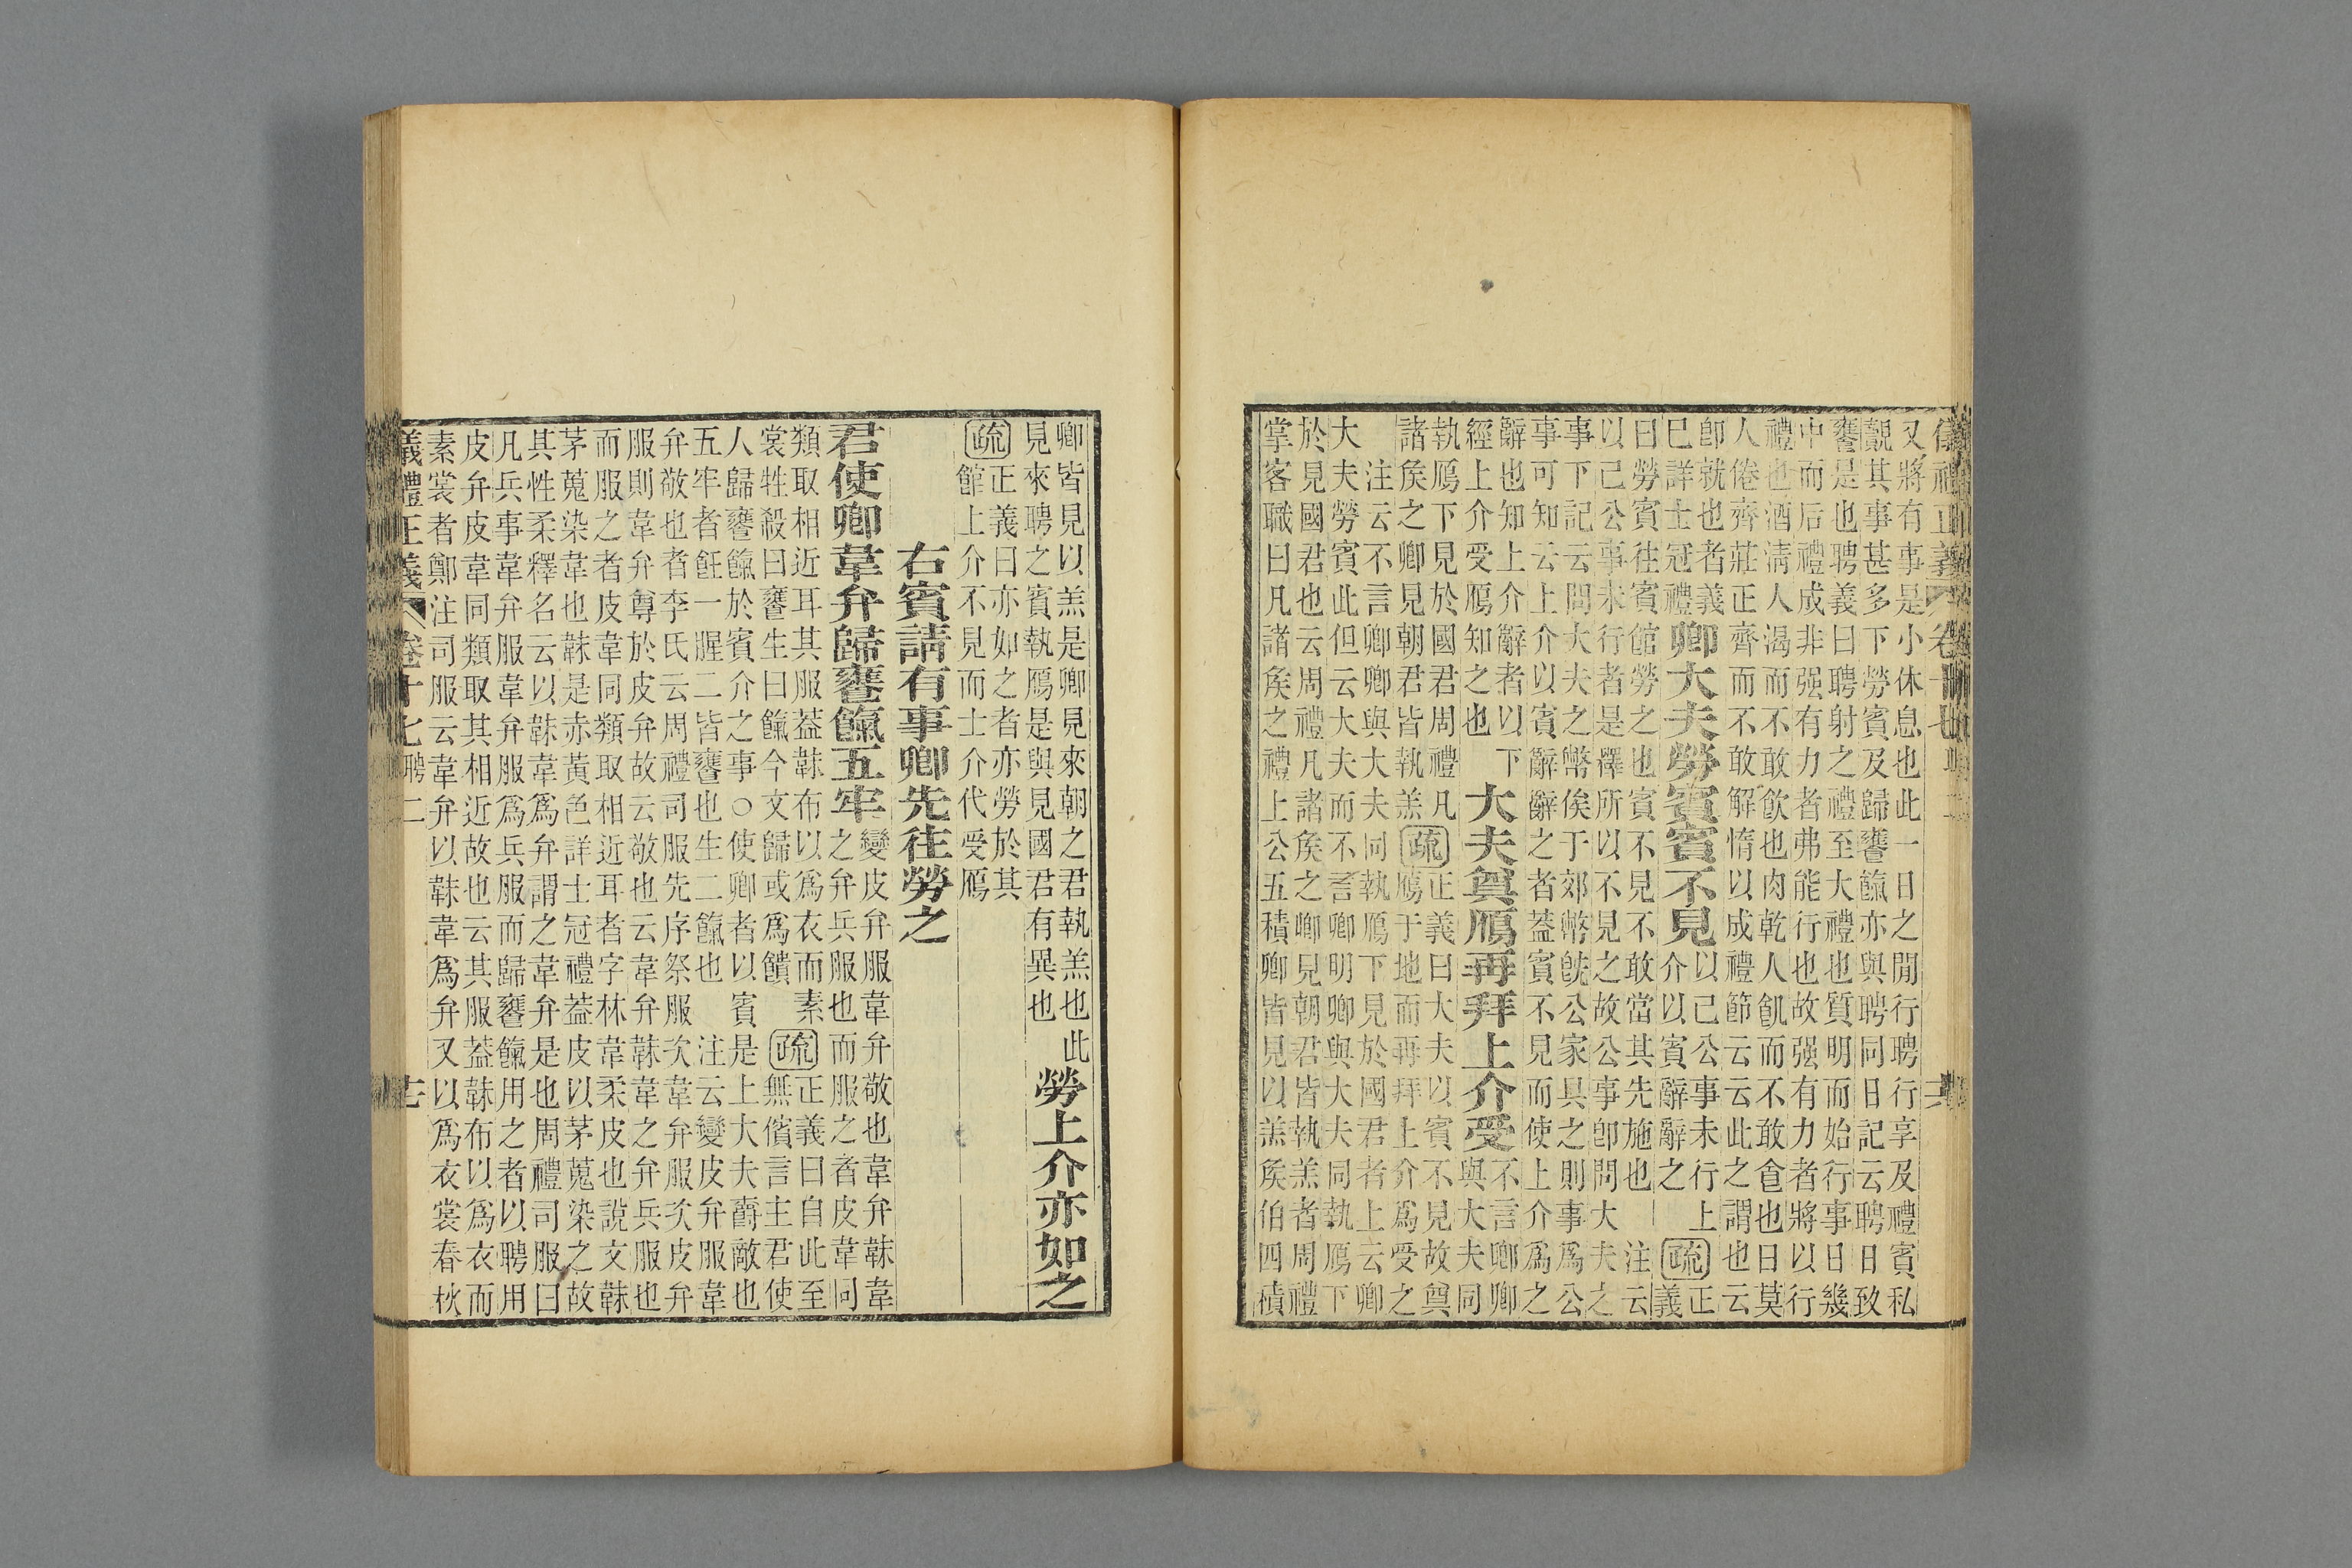 儀禮正義 卷十七 聘二
又將有事是小休息也此一日之閒行聘行享及禮賓私
覿其事甚多下勞賓及歸饔餼亦與聘同日記云聘日致
饔是也聘義曰聘射之禮至大禮也質明而始行事日幾
中而后禮成非强有力者弗能行也故强有力者將以行
禮也酒淸人渴而不敢飮也肉乾人飢而不敢食也日莫
人倦齊莊正齊而不敢解惰以成禮節云云此之謂也云
卽就也者義
已詳士冠禮
卿大夫勞賓賓不見
以己公事未行上
介以賓辭辭之
疏
正
義
曰勞賓往賓館勞之也賓不見不敢當其先施也 注云
以己公事未行者是釋所以不見之故公事卽問大夫之
事下記云問大夫之幣俟于郊幣旣公家具之則事爲公
事可知云上介以賓辭辭之者蓋賓不見而使上介爲之
辭也知上介辭者以下
經上介受鴈知之也
大夫奠鴈再拜上介受
不言卿卿
與大夫同
執鴈下見於國君周禮凡
諸侯之卿見朝君皆執羔
疏
正義曰大夫以賓不見故奠
鴈于地而再拜上介爲受之
注云不言卿卿與大夫同執鴈下見於國君者上云卿
大夫勞賓此但云大夫而不言卿明卿與大夫同執鴈下
於見國君也云周禮凡諸侯之卿見朝君皆執羔者周禮
掌客職曰凡諸侯之禮上公五積卿皆見以羔侯伯四積
卿皆見以羔是卿見來朝之君執羔也此
見來聘之賓執鴈是與見國君有異也
勞上介亦如之
疏
正義曰亦如之者亦勞於其
館上介不見而士介代受鴈
右賓請有事卿先往勞之
君使卿韋弁歸饔餼五牢
變皮弁服韋弁敬也韋弁韎韋
之弁兵服也而服之者皮韋同
類取相近耳其服蓋韎布以爲衣而素
裳牲殺曰饔生曰餼今文歸或爲饋
疏
正義曰自此至
無儐言主君使
人歸饔餼於賓介之事○使卿者以賓是上大夫爵敵也
五牢者飪一腥二皆饔也生二餼也 注云變皮弁服韋
弁敬也者李氏云周禮司服先序祭服次韋弁服次皮弁
服則韋弁尊於皮弁故云敬也云韋弁韎韋之弁兵服也
而服之者皮韋同類取相近耳者字林韋柔皮也說文韎
茅蒐染韋也韎是赤黃色詳士冠禮蓋皮以茅蒐染之故
其性柔釋名云以韎韋爲弁謂之韋弁是也周禮司服曰
凡兵事韋弁服韋弁服爲兵服而歸饔餼用之者以聘用
皮弁皮韋同類取其相近故也云其服蓋韎布以爲衣而
素裳者鄭注司服云韋弁以韎韋爲弁又以爲衣裳春秋
儀禮正義 卷十七 聘二